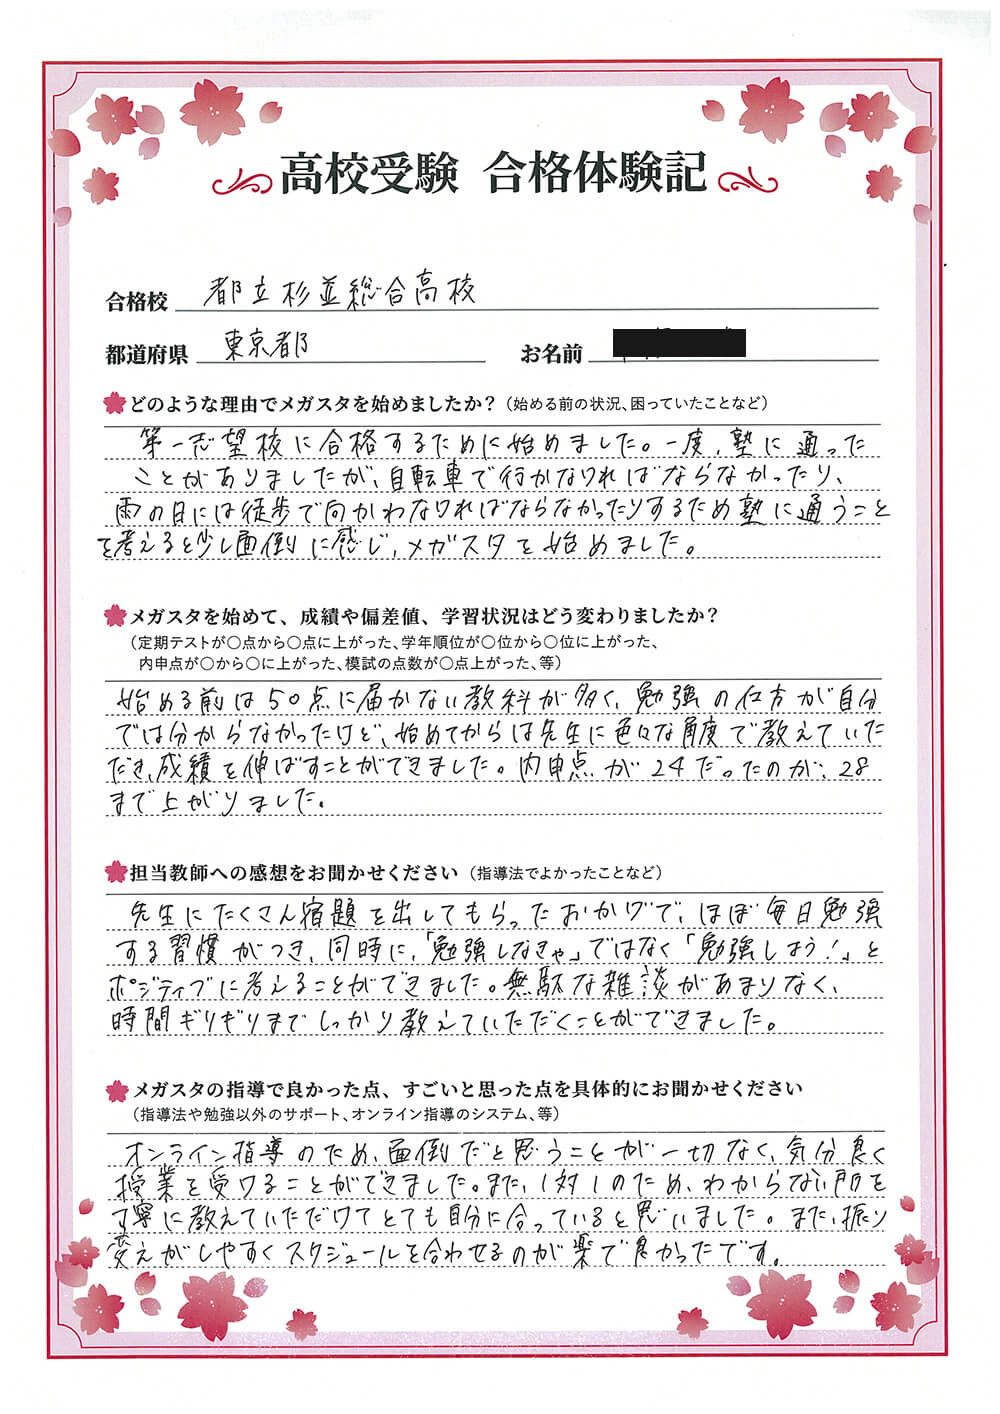 高校受験 合格体験記
合格校 都立杉並総合高校
都道府県 東京都 お名前
どのような理由でメガスタを始めましたか？（始める前の状況、困っていたことなど）
第一志望校に合格するために始めました。一度、塾に通った
ことがありましたが、自転車で行かなければならなかったり、
雨の日には徒歩で向かわなければならなかったりするため塾に通うこと
を考えると少し面倒に感じ、メガスタを始めました。
メガスタを始めて、成績や偏差値、学習状況はどう変わりましたか？
（定期テストが〇点から〇点に上がった、学年順位が〇位から〇位に上がった、
内申点が〇から〇に上がった、模試の点数が〇点上がった、等）
始める前は50点に届かない教科が多く、勉強の仕方が自分
では分からなかったけど、始めてからは先生に色々な角度で教えていた
だき、成績を伸ばすことができました。内申点が24だったのが、28
まで上がりました。
担当教師への感想をお聞かせください（指導法でよかったことなど）
先生にたくさん宿題を出してもらったおかげで、ほぼ毎日勉強
する習慣がつき、同時に、「勉強しなきゃ」ではなく「勉強しよう！」と
ポジティブに考えることができました。無駄な雑談があまりなく、
時間ギリギリまでしっかり教えていただくことができました。
メガスタの指導で良かった点、すごいと思った点を具体的にお聞かせください
（指導法や勉強以外のサポート、オンライン指導のシステム、等）
オンライン指導のため、面倒だと思うことが一切なく、気分良く
授業を受けることができました。また、1対1のため、わからない所を
丁寧に教えていただけてとても自分に合っていると思いました。また、振り
変えがしやすくスケジュールを合わせるのが楽で良かったです。